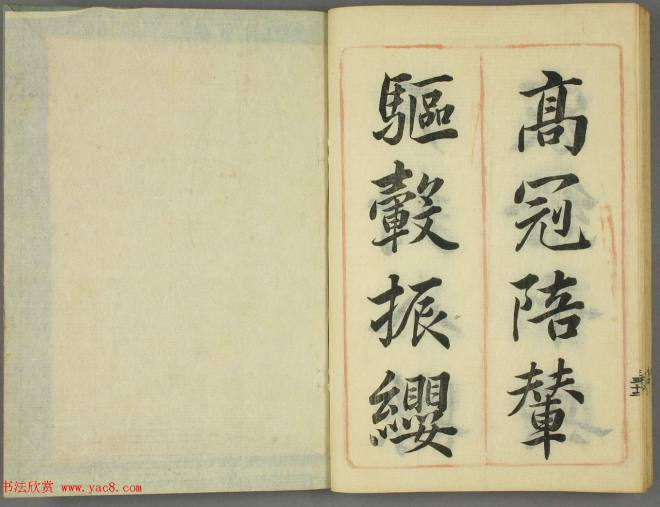 高冠陪輦
驅轂振纓
书法欣赏 www.yac8.com